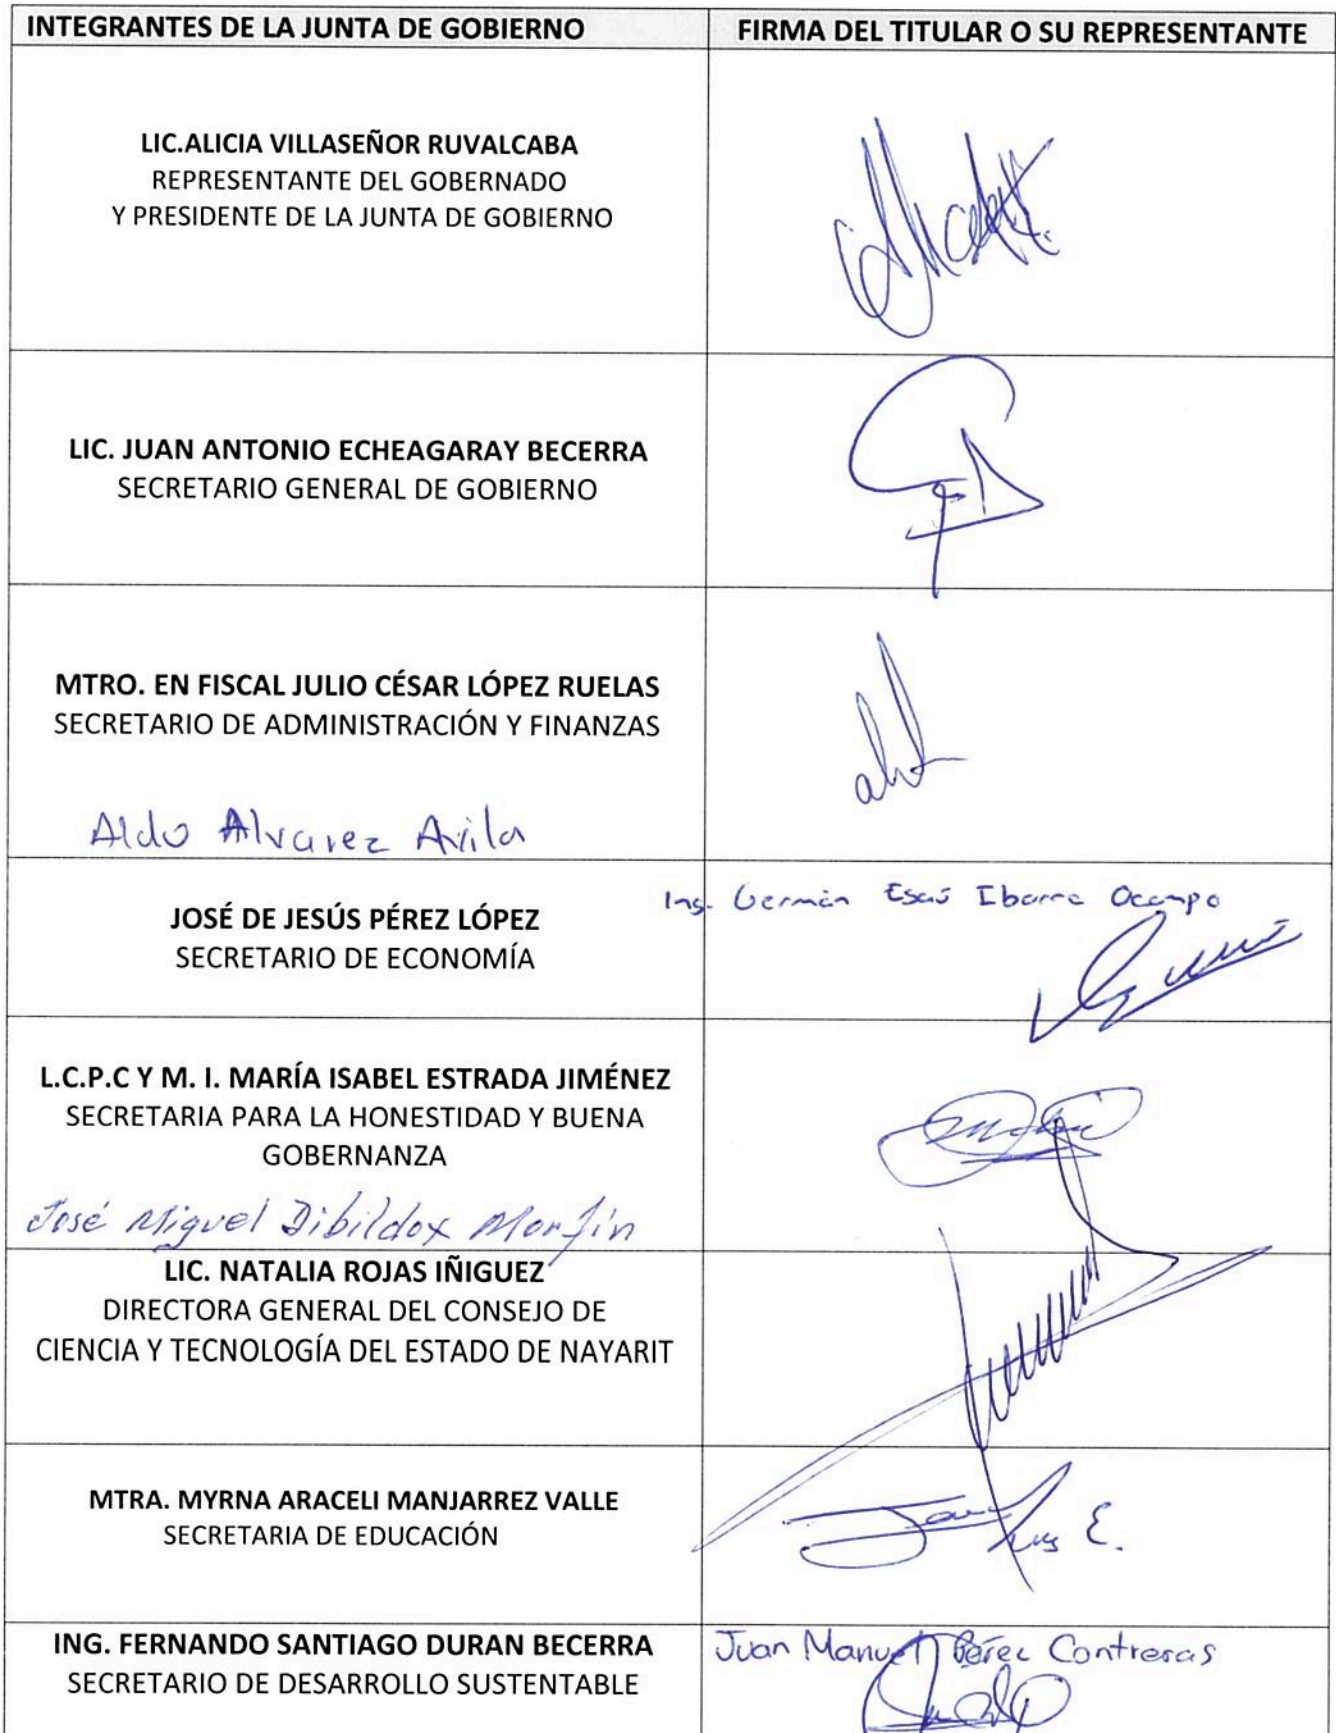 INTEGRANTES DE LA JUNTA DE GOBIERNO
FIRMA DEL TITULAR O SU REPRESENTANTE
LIC.ALICIA VILLASEÑOR RUVALCABA
REPRESENTANTE DEL GOBERNADO
Y PRESIDENTE DE LA JUNTA DE GOBIERNO
LIC. JUAN ANTONIO ECHEAGARAY BECERRA
SECRETARIO GENERAL DE GOBIERNO
MTRO. EN FISCAL JULIO CÉSAR LÓPEZ RUELAS
SECRETARIO DE ADMINISTRACIÓN Y FINANZAS
Aldo Alvarez Avila
JOSÉ DE JESÚS PÉREZ LÓPEZ
SECRETARIO DE ECONOMÍA
Ing. Germán Esaú Ibarra Ocampo
L.C.P.C Y M. I. MARÍA ISABEL ESTRADA JIMÉNEZ
SECRETARIA PARA LA HONESTIDAD Y BUENA
GOBERNANZA
José Miguel Dibildox Morfín
LIC. NATALIA ROJAS IÑIGUEZ
DIRECTORA GENERAL DEL CONSEJO DE
CIENCIA Y TECNOLOGÍA DEL ESTADO DE NAYARIT
MTRA. MYRNA ARACELI MANJARREZ VALLE
SECRETARIA DE EDUCACIÓN
ING. FERNANDO SANTIAGO DURAN BECERRA
SECRETARIO DE DESARROLLO SUSTENTABLE
Juan Manuel Pérez Contreras